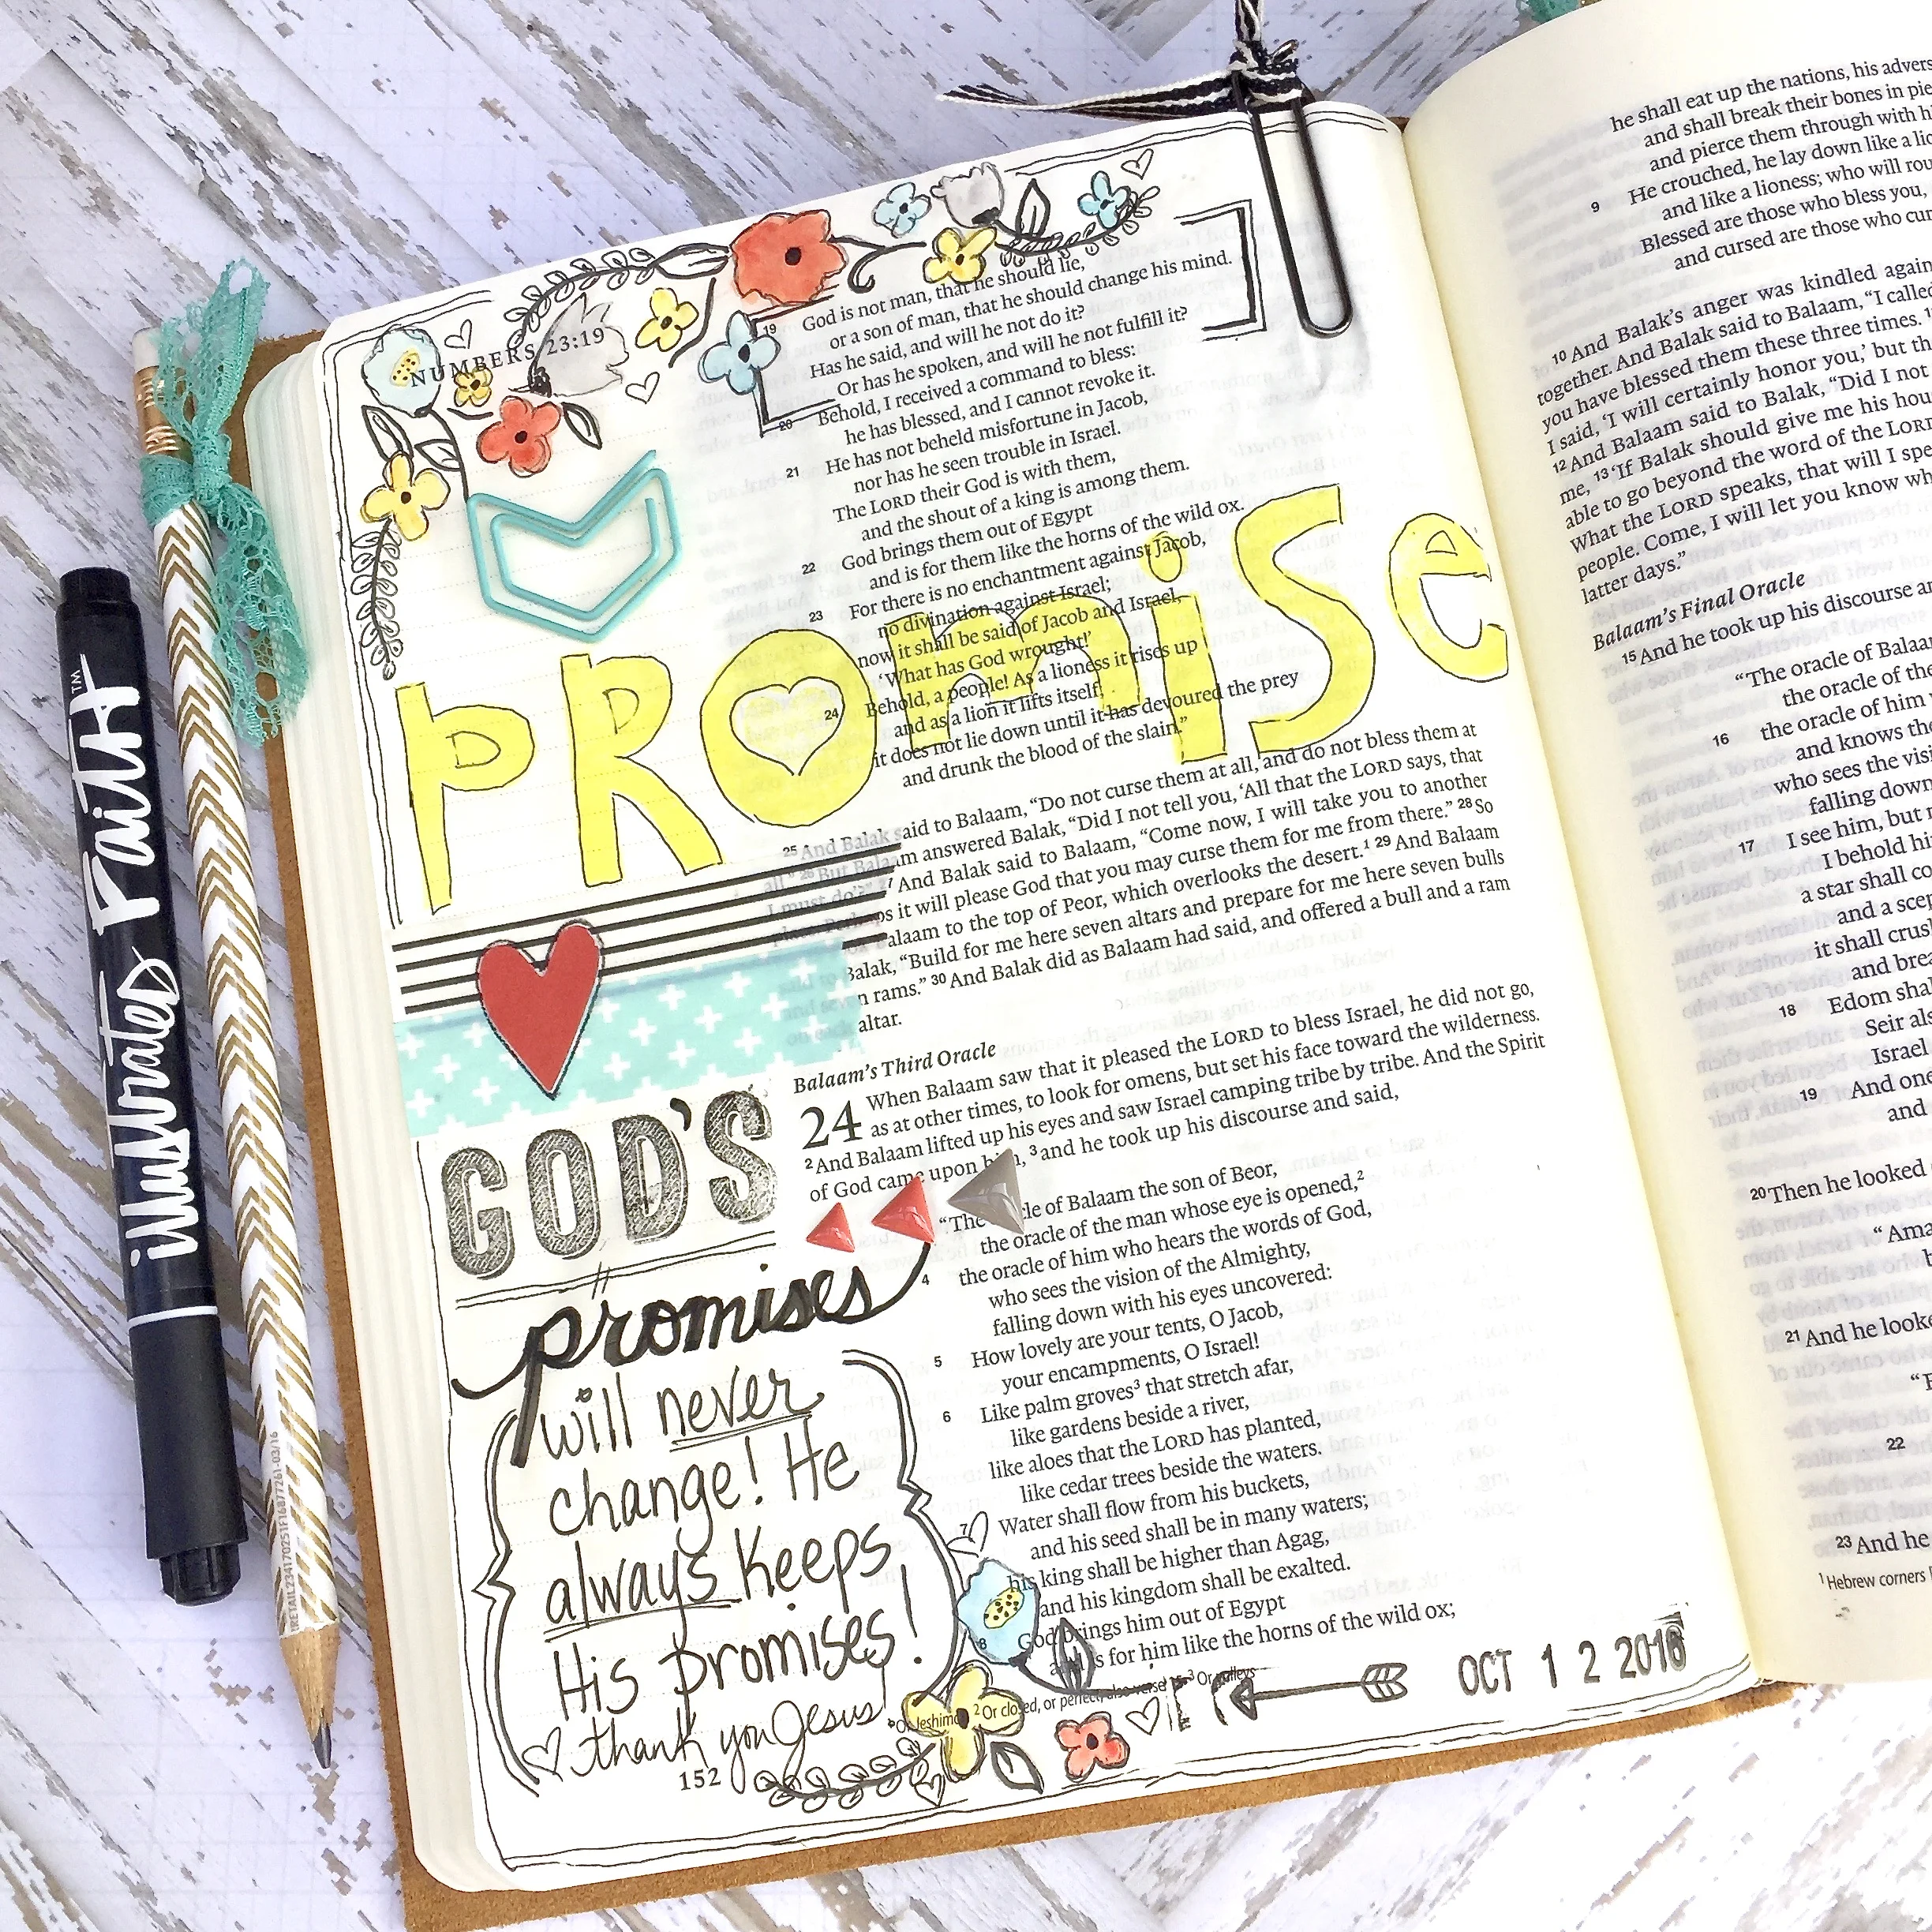 NUMBERS 23:19
19 God is not man, that he should lie,
or a son of man, that he should change his mind.
Has he said, and will he not do it?
Or has he spoken, and will he not fulfill it?
20 Behold, I received a command to bless:
he has blessed, and I cannot revoke it.
21 He has not beheld misfortune in Jacob,
nor has he seen trouble in Israel.
The LORD their God is with them,
and the shout of a king is among them.
22 God brings them out of Egypt
and is for them like the horns of the wild ox.
23 For there is no enchantment against Jacob,
no divination against Israel;
now it shall be said of Jacob and Israel,
‘What has God wrought!’
24 Behold, a people! As a lioness it rises up
and as a lion it lifts itself;
it does not lie down until it has devoured the prey
and drunk the blood of the slain.”
PROmiSe
25 And Balak said to Balaam, “Do not curse them at all, and do not bless them at
all.” 26 But Balaam answered Balak, “Did I not tell you, ‘All that the LORD says, that
I must do’?” 27 And Balak said to Balaam, “Come now, I will take you to another
place. Perhaps it will please God that you may curse them for me from there.” 28 So
Balaam to the top of Peor, which overlooks the desert.1 29 And Balaam
Balak, “Build for me here seven altars and prepare for me here seven bulls
rams.” 30 And Balak did as Balaam had said, and offered a bull and a ram
altar.
Balaam’s Third Oracle
24 When Balaam saw that it pleased the LORD to bless Israel, he did not go,
as at other times, to look for omens, but set his face toward the wilderness.
2 And Balaam lifted up his eyes and saw Israel camping tribe by tribe. And the Spirit
of God came upon him, 3 and he took up his discourse and said,
“The oracle of Balaam the son of Beor,
the oracle of the man whose eye is opened,2
4 the oracle of him who hears the words of God,
who sees the vision of the Almighty,
falling down with his eyes uncovered:
5 How lovely are your tents, O Jacob,
your encampments, O Israel!
6 Like palm groves3 that stretch afar,
like gardens beside a river,
like aloes that the LORD has planted,
like cedar trees beside the waters.
7 Water shall flow from his buckets,
and his seed shall be in many waters;
his king shall be higher than Agag,
and his kingdom shall be exalted.
8 God brings him out of Egypt
and is for him like the horns of the wild ox;
2 Or closed, or perfect; also verse 15 3 Or valleys
GOD'S
promises
will never
change! He
always keeps
His promises!
thank you Jesus
152
OCT 1 2 2016
illustrated Faith™
IRETAIL2341702S1F16877261-03/16
he shall eat up the nations, his
and shall break their bones in
and pierce them through with
9 He crouched, he lay down like a
and like a lioness; who will
Blessed are those who bless you,
and cursed are those who
10 And Balak’s anger was kindled
together. And Balak said to Balaam, “I
you have blessed them these three times.
I said, ‘I will certainly honor you,’ but
12 And Balaam said to Balak, “Did I not
me, 13 ‘If Balak should give me his
able to go beyond the word of the LORD
What the LORD speaks, that will I
people. Come, I will let you know
latter days.”
Balaam’s Final Oracle
15 And he took up his discourse
“The oracle of
the oracle of the
16 the oracle of him
and knows the
who sees the
falling down
17 I see him, but
I behold
a star shall
and a
it shall
and
18 Edom
Seir
Israel
19 And
and
20 Then he looked
21 And he
22
23 And he
1 Hebrew corners